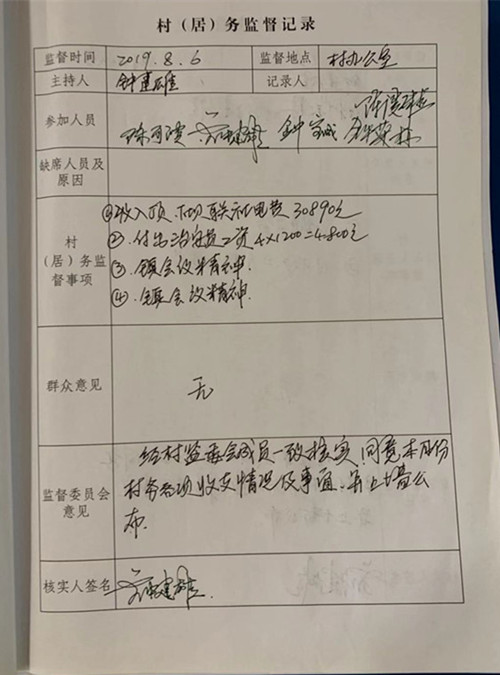 村（居）务监督记录
监督时间 2019.8.6 监督地点 村办公室
主持人 钟建雄 记录人
参加人员
钟
缺席人员及原因
村（居）务监督事项
①收入 联社电费30890元
②.付出治安员工资4×1200=4800元
③.镇会议精神.
④.镇会议精神.
群众意见 无
监督委员会意见
经村监委会成员一致核实,同意本月份
村务各项收支情况及事宜.并上墙公
布.
核实人签名 钟建雄.